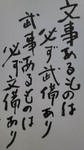 文事あるものは
必ず武備あり
武事あるものは
必ず文備あり